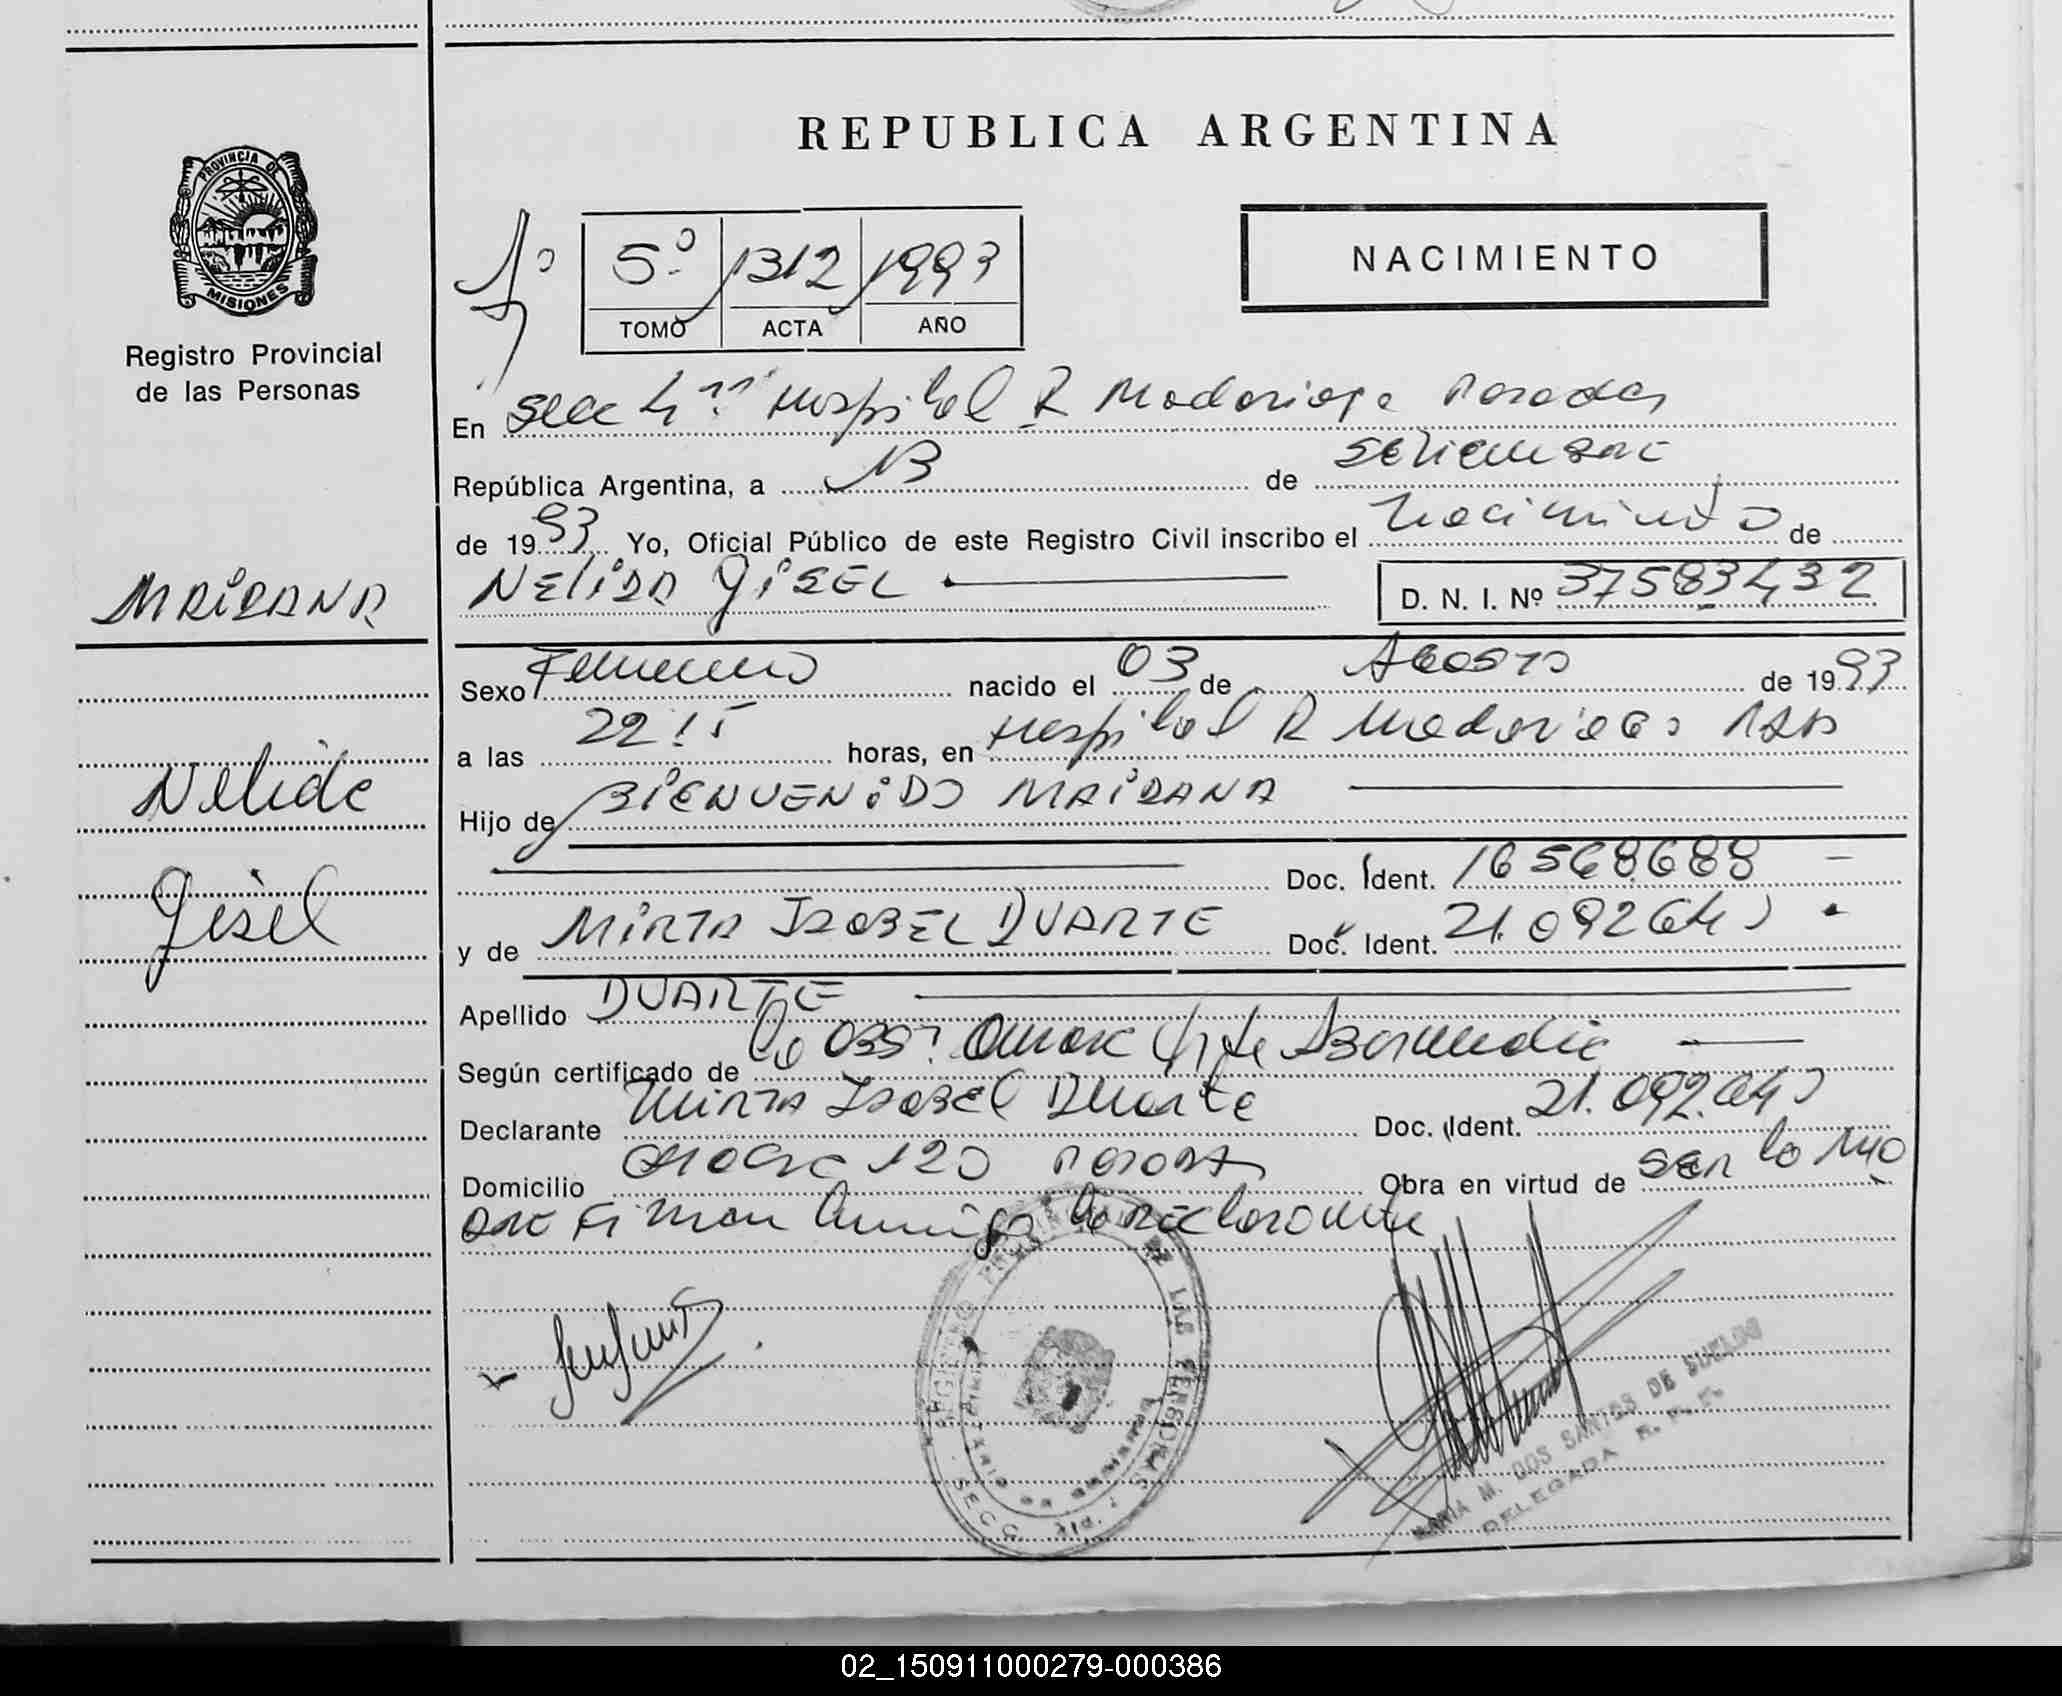 REPUBLICA ARGENTINA
PROVINCIA DE
MISIONES
Registro Provincial
de las Personas
5º 1312 1993
TOMO ACTA AÑO
NACIMIENTO
En Secc 4 Hospital R Madariaga Posadas
República Argentina, a 13 de Setiembre
de 1993 Yo, Oficial Público de este Registro Civil inscribo el nacimiento de
MAIDANA
NELIDA GISEL D. N. I. Nº 37583432
Sexo Femenino nacido el 03 de AGOSTO de 1993
a las 22 15 horas, en Hospital R Madariaga
Nelida
Hijo de BIENVENIDO MAIDANA
Gisel
Doc. Ident. 16568688
y de MIRTA ISABEL DUARTE Doc. Ident.
Apellido DUARTE
Según certificado de
Declarante MIRTA ISABEL Duarte Doc. Ident.
Domicilio 120 Obra en virtud de ser la
firman conmigo la declarante
REGISTRO PROVINCIAL DE LAS PERSONAS
SECC.
MARIA M. DOS SANTOS DE SUELDO
DELEGADA R. P. P.
02_150911000279-000386